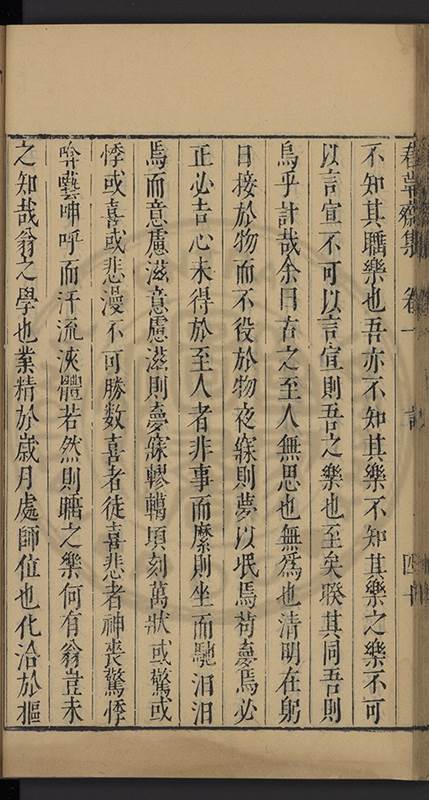 春草齋集 卷一 記 四十
不知其聸樂也吾亦不知其樂不知其樂之樂不可
以言宣不可以言宣則吾之樂也至矣暌其同吾則
烏乎計哉余曰古之至人無思也無爲也清明在躬
日接於物而不役於物夜寐則夢以泯焉苟夢焉必
正必吉心未得於至人者非事而縻則坐而馳汨汨
焉而意慮滋意慮滋則夢寐轇轕頃刻萬狀或驚或
悸或喜或悲漫不可勝數喜者徒喜悲者神喪驚悸
囈呻呼而汗流浹體若然則聸之樂何有翁豈未
之知哉翁之學也業精於歲月處師位也化洽於